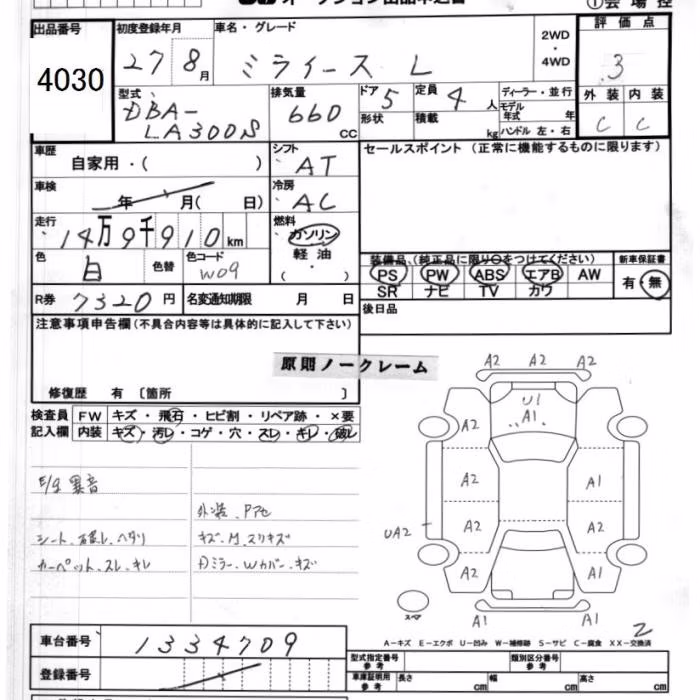 出品番号
4030
初度登録年月
27 8月
車名・グレード
ミライース L
2WD
・
4WD
評価点
3
型式
DBA-
LA300S
排気量
660 cc
ドア 5
形状
定員 4 人
積載 kg
ディーラー・並行
モデル年式 年
ハンドル 左・右
外装 内装
C C
車歴
自家用・( )
シフト
AT
セールスポイント (正常に機能するものに限ります)
車検
年 月( 日)
冷房
AC
走行
14万9千910km
燃料
ガソリン
軽油
( ・ )
色
白
色替
色コード
W09
装備品 (純正品に限り○をつけてください)
新車保証書
PS PW ABS エアB AW
有・無
SR ナビ TV カワ
R券 7320円
名変通知期限 月 日
後日品
注意事項申告欄(不具合内容等は具体的に記入して下さい)
原則ノークレーム
修復歴 有 〔箇所 〕
検査員 FW キズ・飛石・ヒビ割・リペア跡・×要
記入欄 内装 キズ・汚レ・コゲ・穴・スレ・キレ・破レ
E/g 異音
外装、Pアセ
シート、破レ、ヘタリ
キズ、M、スリキズ
カーペット、スレ、キレ
Dミラー、Wカバー、キズ
A2 A2 A2
U1
A1
A2
A2 A1
UA2 A2 A2
A2 A1
スペア
A1 A1
2
A-キズ E-エクボ U-凹み W-補修跡 S-サビ C-腐食 XX-交換済
車台番号 1334709
登録番号
型式指定番号
参考
類別区分番号
参考
車庫証明用
参考
長さ cm
幅 cm
高さ cm